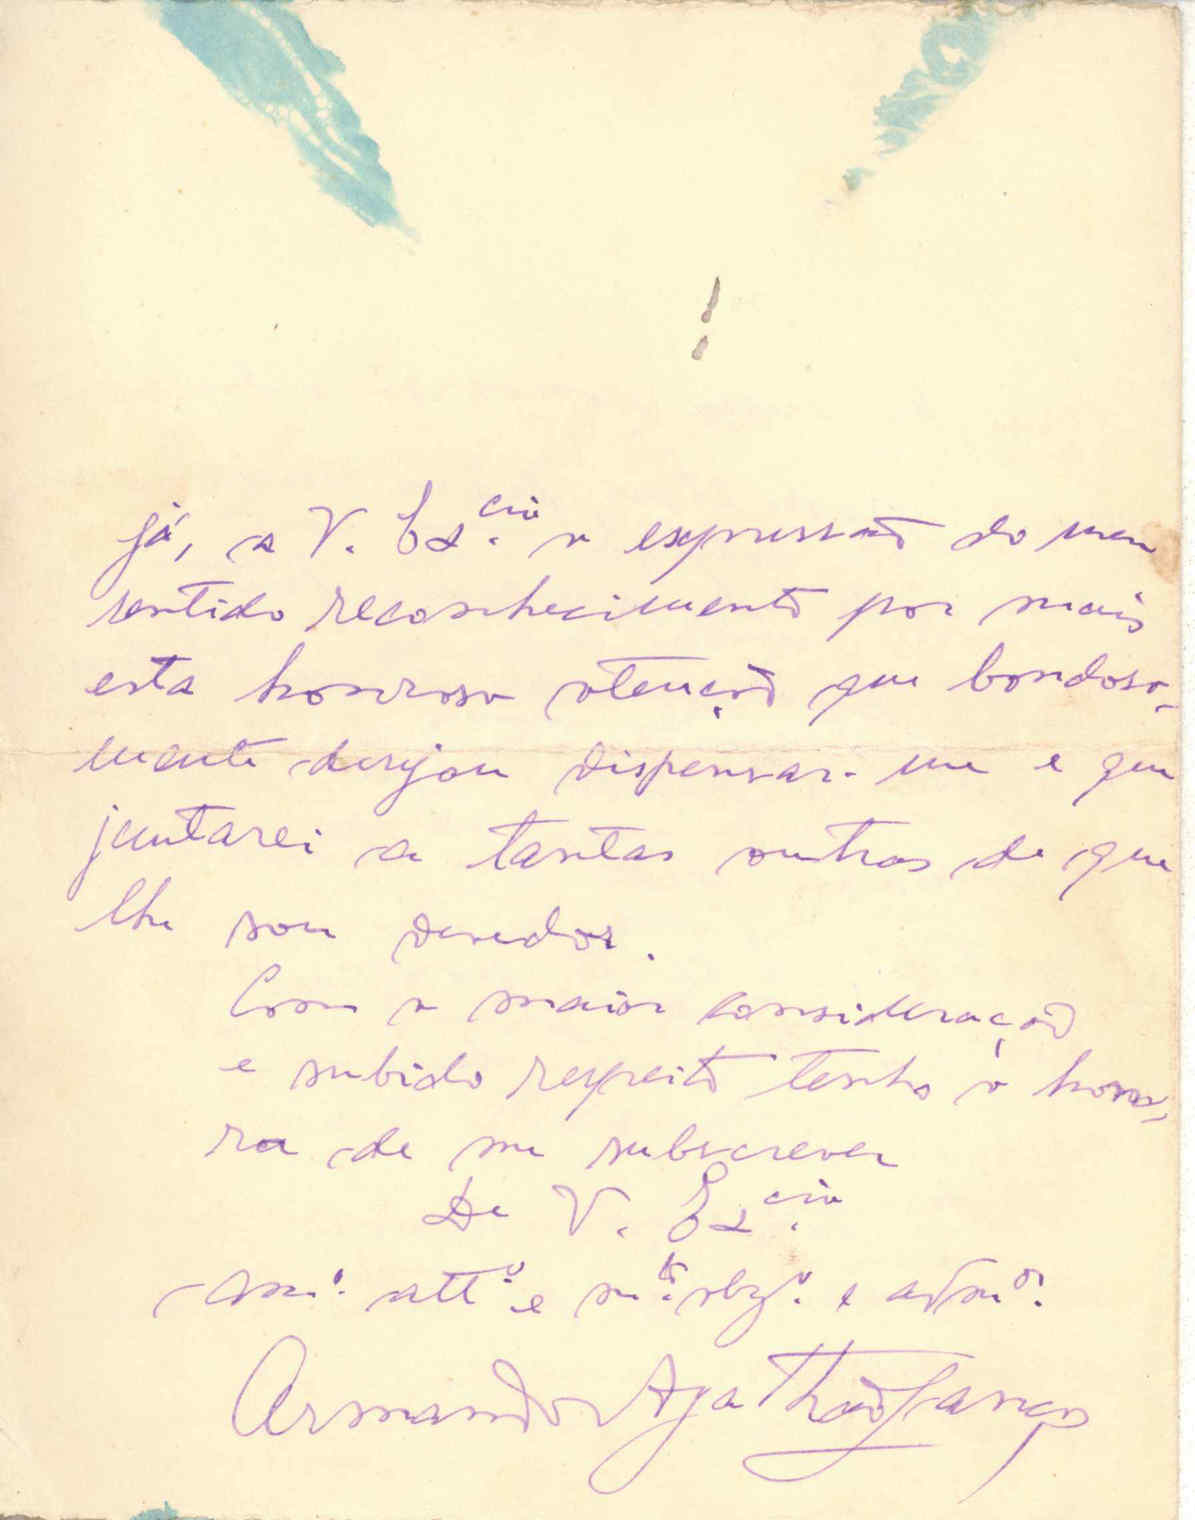 já, a V. Ex.cia a expressão do meu
sentido reconhecimento por mais
esta honrosa atenção que bondosa-
mente desejou dispensar-me e que
juntarei a tantas outras de que
lhe sou devedor.
Com a maior consideração
e subido respeito tenho a hon-
ra de me subscrever
De V. Ex.cia
Am.º att.º e m.to obg.º e adm.or
Armando